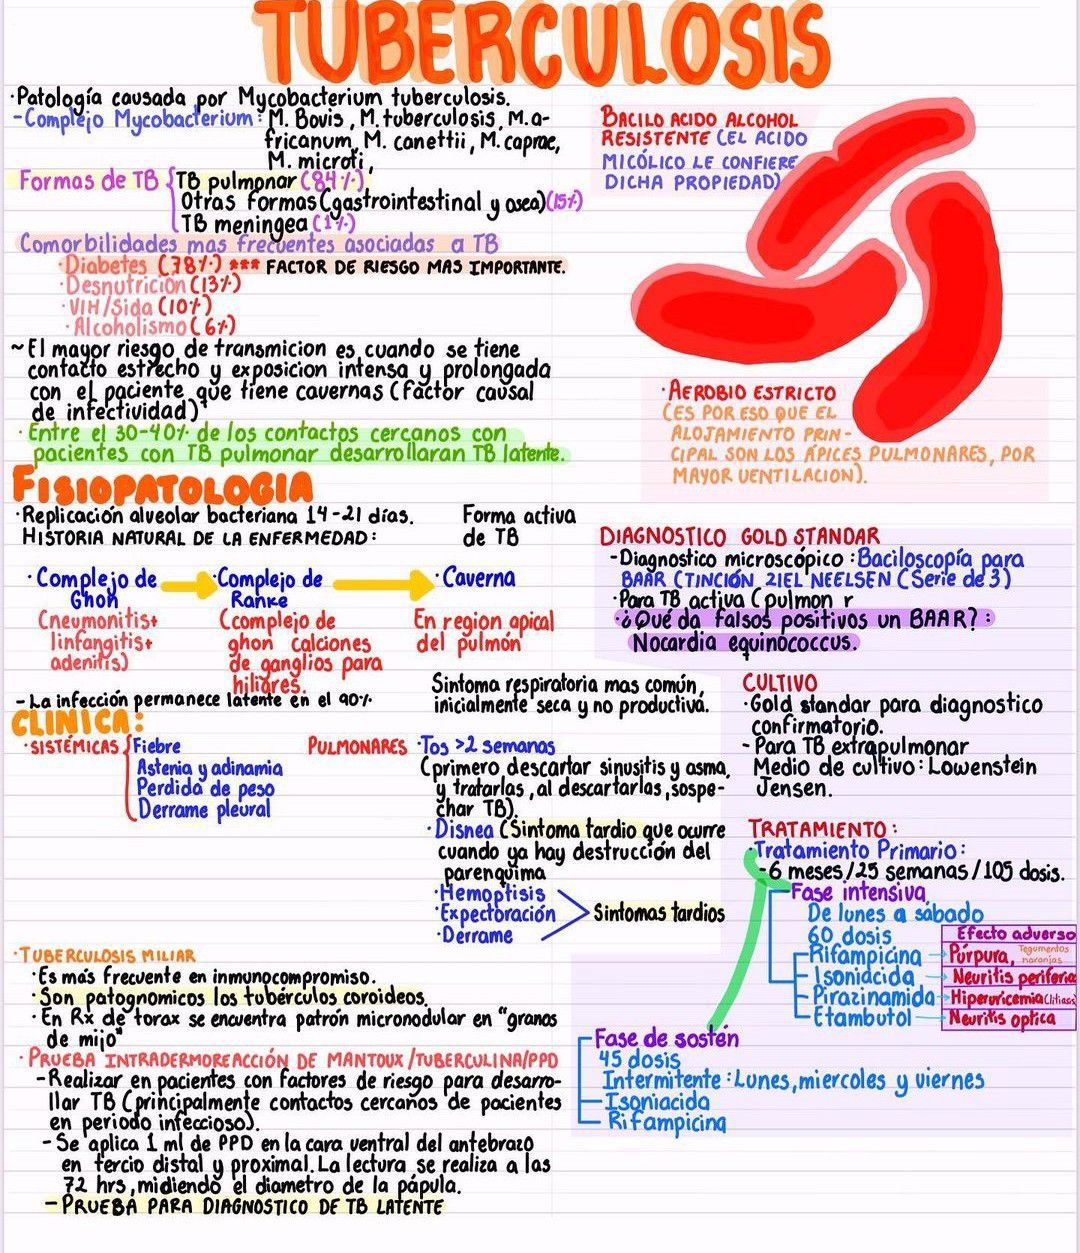 TUBERCULOSIS
·Patología causada por Mycobacterium tuberculosis.
-Complejo Mycobacterium: M. Bovis, M. tuberculosis, M. a-
fricanum, M. canettii, M. caprae,
M. microti,
Formas de TB { TB pulmonar (84%)
Otras formas (gastrointestinal y osea) (15%)
TB meningea (1%)
Comorbilidades mas frecuentes asociadas a TB
·Diabetes (78%) *** FACTOR DE RIESGO MAS IMPORTANTE.
·Desnutrición (13%)
·VIH/Sida (10%)
·Alcoholismo (6%)
~El mayor riesgo de transmicion es cuando se tiene
contacto estrecho y exposicion intensa y prolongada
con el paciente que tiene cavernas (factor causal
de infectividad)
·Entre el 30-40% de los contactos cercanos con
pacientes con TB pulmonar desarrollaran TB latente.
BACILO ACIDO ALCOHOL
RESISTENTE (EL ACIDO
MICÓLICO LE CONFIERE
DICHA PROPIEDAD)
·AEROBIO ESTRICTO
(ES POR ESO QUE EL
ALOJAMIENTO PRIN-
CIPAL SON LOS ÁPICES PULMONARES, POR
MAYOR VENTILACION).
FISIOPATOLOGIA
·Replicación alveolar bacteriana 14-21 días.
HISTORIA NATURAL DE LA ENFERMEDAD:
Forma activa
de TB
·Complejo de
Ghon
(neumonitis+
linfangitis+
adenitis)
·Complejo de
Ranke
(complejo de
ghon calciones
de ganglios para
hiliares.
·Caverna
En region apical
del pulmón
- La infección permanece latente en el 90%
DIAGNOSTICO GOLD STANDAR
-Diagnostico microscópico: Baciloscopía para
BAAR (TINCIÓN ZIEL NEELSEN (Serie de 3)
·Para TB activa (pulmon r
·¿Qué da falsos positivos un BAAR?:
Nocardia equinococcus.
CLINICA:
·SISTÉMICAS { Fiebre
Astenia y adinamia
Perdida de peso
Derrame pleural
Sintoma respiratoria mas común,
inicialmente seca y no productiva.
PULMONARES ·Tos >2 semanas
(primero descartar sinusitis y asma,
y tratarlas, al descartarlas, sospe-
char TB).
·Disnea (Sintoma tardio que ocurre
cuando ya hay destrucción del
parenquima
·Hemoptisis
·Expectoración
·Derrame
Sintomas tardios
CULTIVO
·Gold standar para diagnostico
confirmatorio.
- Para TB extrapulmonar
Medio de cultivo: Lowenstein
Jensen.
TRATAMIENTO:
·Tratamiento Primario:
-6 meses/25 semanas/105 dosis.
Fase intensiva
De lunes a sábado
60 dosis
Efecto adverso
Rifampicina → Púrpura, Tegumentos naranjas
Isoniacida → Neuritis periferica
Pirazinamida → Hiperuricemia (litiasis)
Etambutol Neuritis optica
Fase de sostén
45 dosis
Intermitente: Lunes, miercoles y viernes
Isoniacida
Rifampicina
·TUBERCULOSIS MILIAR
·Es más frecuente en inmunocompromiso.
·Son patognomicos los tubérculos coroideos.
·En Rx de torax se encuentra patrón micronodular en "granos
de mijo"
·PRUEBA INTRADERMOREACCIÓN DE MANTOUX/TUBERCULINA/PPD
-Realizar en pacientes con factores de riesgo para desarro-
llar TB (principalmente contactos cercanos de pacientes
en periodo infeccioso).
-Se aplica 1 ml de PPD en la cara ventral del antebrazo
en tercio distal y proximal. La lectura se realiza a las
72 hrs, midiendo el diametro de la pápula.
- PRUEBA PARA DIAGNOSTICO DE TB LATENTE